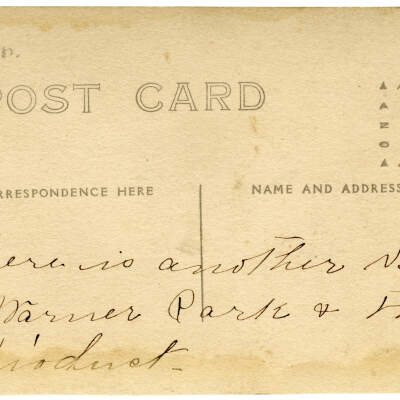 POST CARD
CORRESPONDENCE HERE
NAME AND ADDRESS
ere is another
Warner Park &
Product.